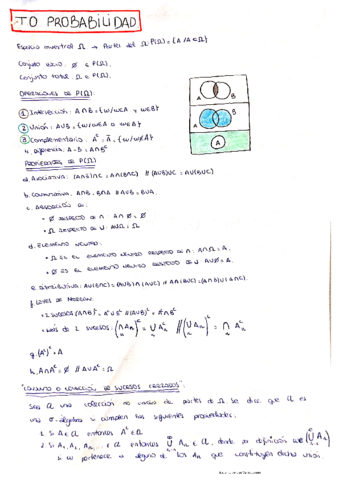 T0 PROBABILIDAD
Espacio muestral Ω → Partes del Ω: P(Ω) = {A / A ⊂ Ω}
Conjunto vacío: ∅ ∈ P(Ω).
Conjunto total: Ω ∈ P(Ω).
OPERACIONES DE P(Ω):
1 Intersección: A∩B = {w/w∈A y w∈B}
2 Unión: A∪B = {w/w∈A o w∈B}
3 Complementario: Aᶜ = Ā = {w/w∉A}
4. Diferencia: A-B = A∩Bᶜ
A B
A B
A
PROPIEDADES DE P(Ω)
a. Asociativa: (A∩B)∩C = A∩(B∩C) // (A∪B)∪C = A∪(B∪C)
b. Conmutativa: A∩B = B∩A // A∪B = B∪A.
c. Absorción de:
∅ respecto de ∩ A∩∅ = ∅
Ω respecto de ∪: A∪Ω = Ω
d. Elemento neutro:
Ω es el elemento neutro respecto de ∩: A∩Ω = A.
∅ es el elemento neutro respecto de ∪: A∪∅ = A.
e. Distributiva: A∪(B∩C) = (A∪B)∩(A∪C) // A∩(B∪C) = (A∩B)∪(A∩C).
f. Leyes de Morgan:
2 sucesos (A∩B)ᶜ = Aᶜ∪Bᶜ // (A∪B)ᶜ = Aᶜ∩Bᶜ
Más de 2 sucesos: (∩Aₙ)ᶜ = ∪Aₙᶜ // (∪Aₙ)ᶜ = ∩Aₙᶜ
g. (Aᶜ)ᶜ = A
h. A∩Aᶜ = ∅ // A∪Aᶜ = Ω
Sea una colección no vacía de partes de Ω. Se dice que es
una σ-álgebra si cumplen las siguientes propiedades:
1. Si A∈ entonces Aᶜ∈
2. Si A₁, A₂, A₃, ... ∈ entonces ∪Aₙ ∈, donde por definición w∈(∪Aₙ)
si w pertenece a alguno de los Aₙ que constituyen dicha unión.